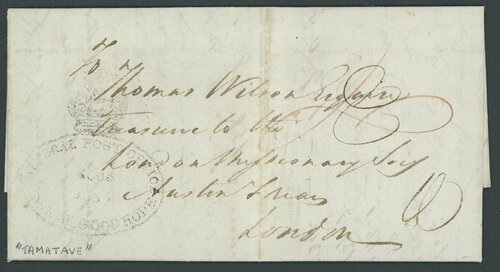 To
Thomas Wilson Esquire
Treasurer to the
London Missionary Socy
Austin Friars
London
GENERAL POST OFFICE
GOOD HOPE
"TAMATAVE"